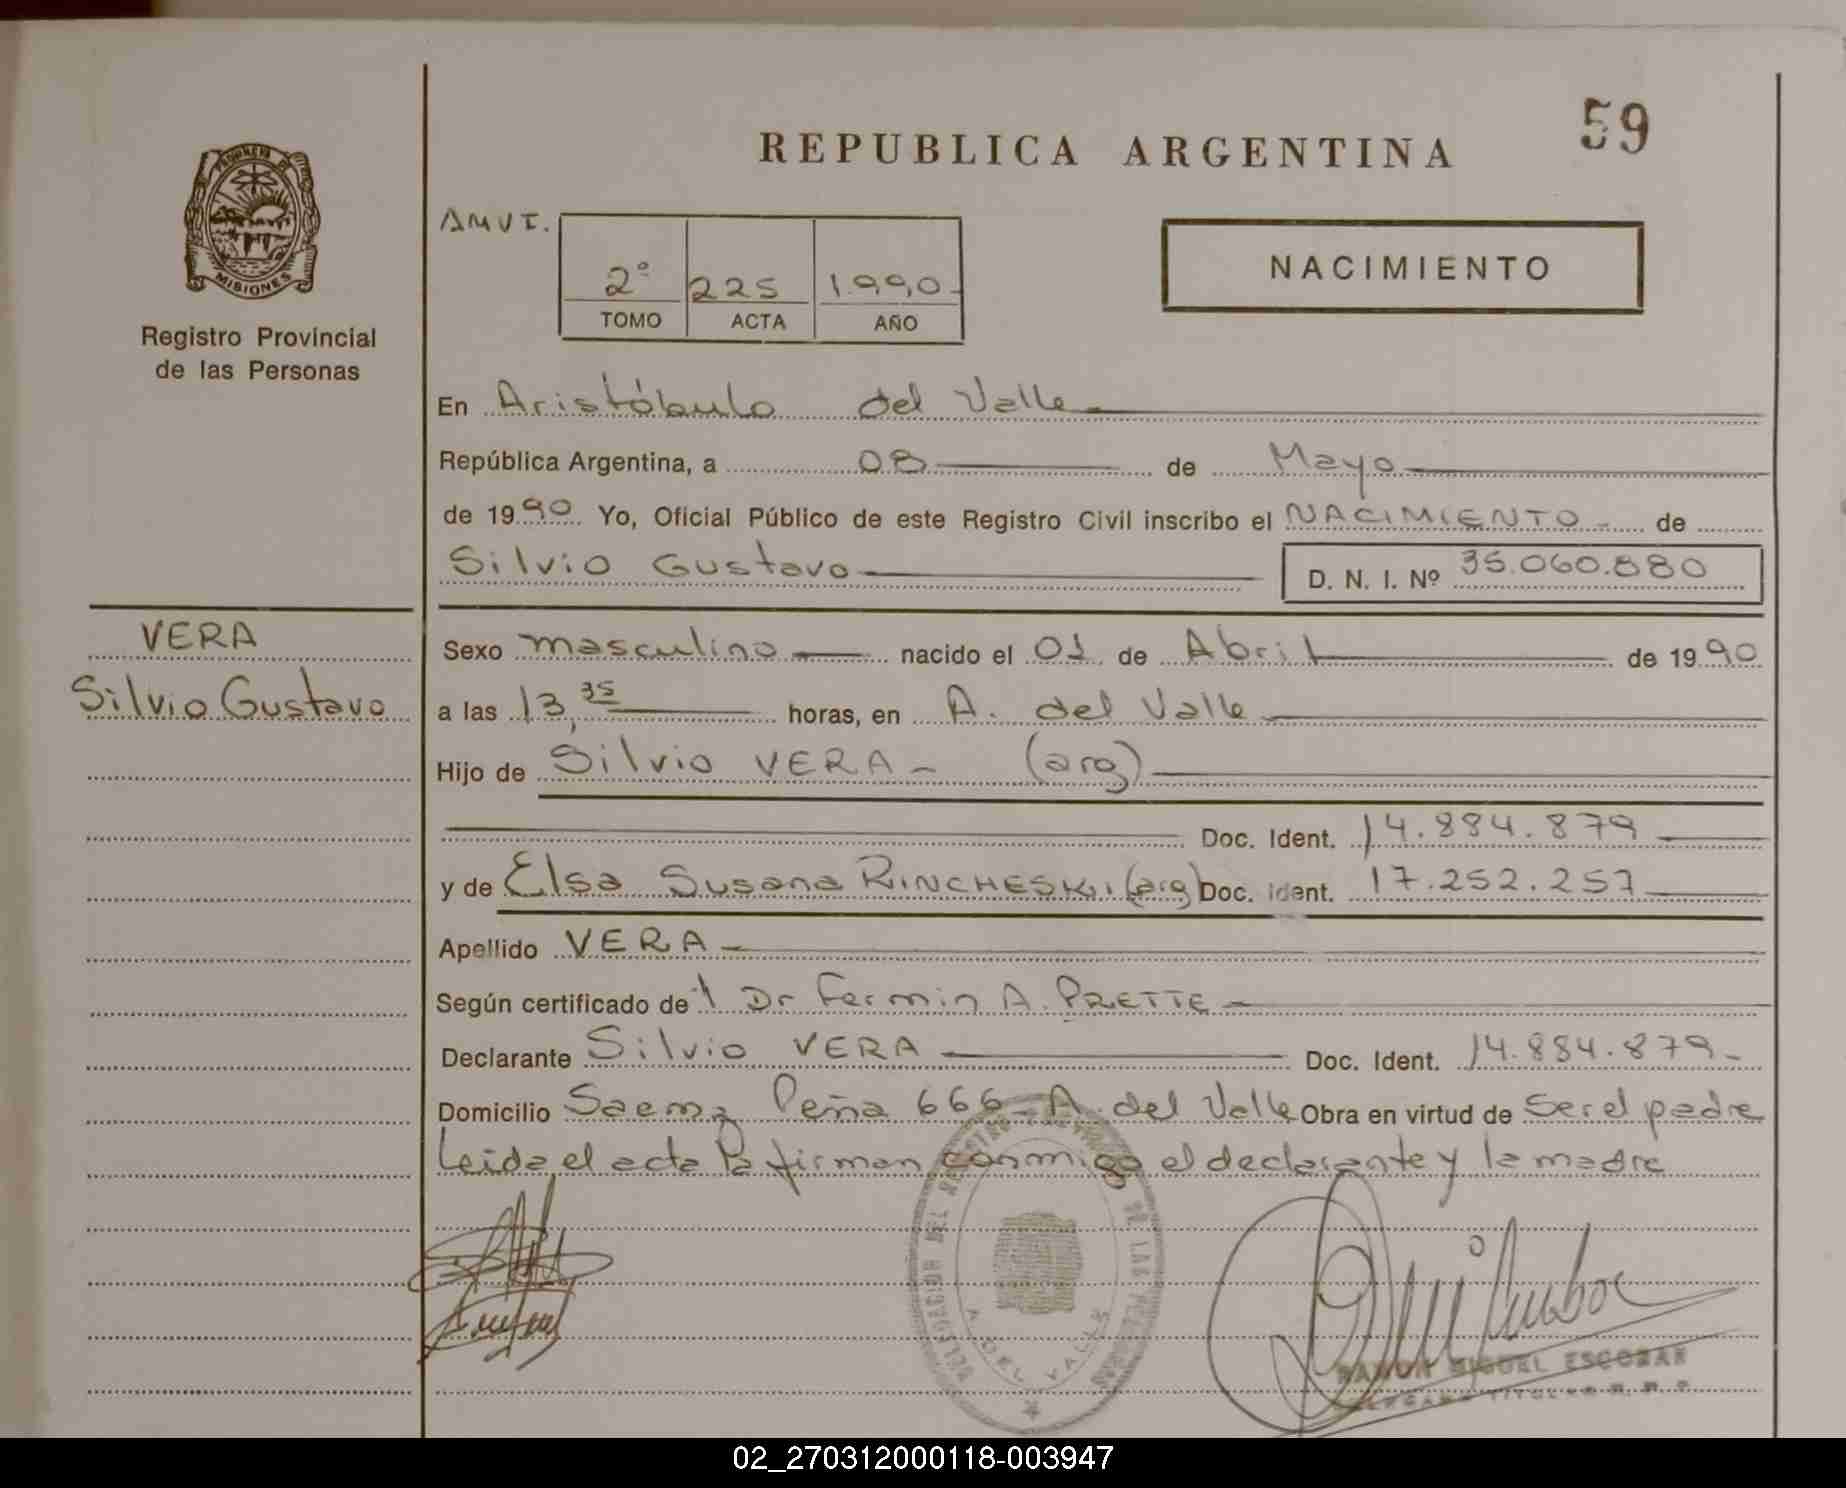 59
REPUBLICA ARGENTINA
PROVINCIA DE
MISIONES
Registro Provincial
de las Personas
AMVI.
2º 225 1990
TOMO ACTA AÑO
NACIMIENTO
En Aristóbulo del Valle
República Argentina, a 08 de Mayo
de 1990 Yo, Oficial Público de este Registro Civil inscribo el NACIMIENTO de
Silvio Gustavo D. N. I. Nº 35.060.880
VERA
Silvio Gustavo
Sexo masculino nacido el 01 de Abril de 1990
a las 13,35 horas, en A. del Valle
Hijo de Silvio VERA - (arg)
Doc. Ident. 14.884.879
y de Elsa Susana RINCHESKI (arg) Doc. Ident. 17.252.257
Apellido VERA
Según certificado de l Dr Fermin A. PRETTE
Declarante Silvio VERA Doc. Ident. 14.884.879
Domicilio Saenz Peña 666 A. del Valle Obra en virtud de Ser el padre
Leida el acta la firman conmigo el declarante y la madre
DELEGACION DEL REGISTRO DE LAS PERSONAS
A. DEL VALLE
RAMON MIGUEL ESCOBAR
TITULAR
02_270312000118-003947